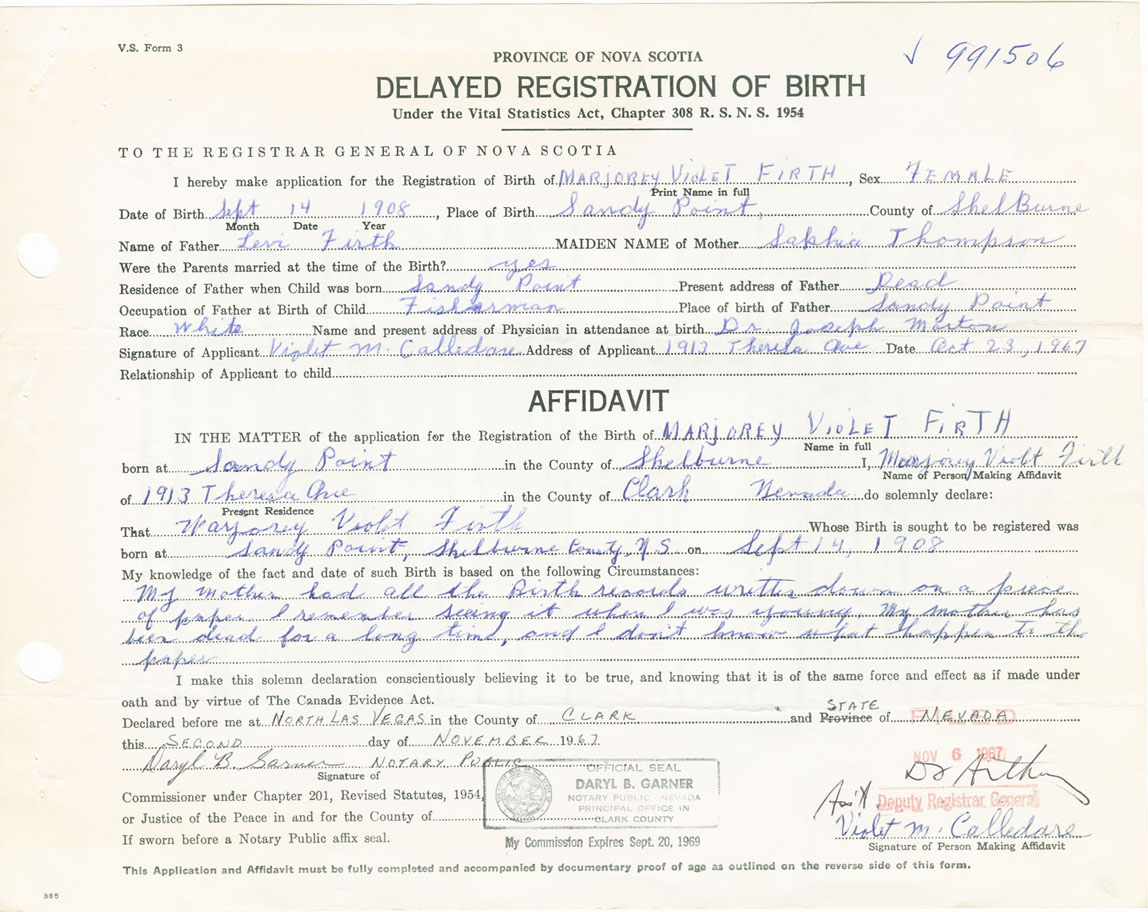 V.S. Form 3
✓ 991506
PROVINCE OF NOVA SCOTIA
DELAYED REGISTRATION OF BIRTH
Under the Vital Statistics Act, Chapter 308 R. S. N. S. 1954
TO THE REGISTRAR GENERAL OF NOVA SCOTIA
I hereby make application for the Registration of Birth of MARJOREY VIOLET FIRTH, Sex FEMALE
Print Name in full
Date of Birth Sept 14 1908, Place of Birth Sandy Point, County of ShelBurne
Month Date Year
Name of Father Levi Firth MAIDEN NAME of Mother Sakhia Thompson
Were the Parents married at the time of the Birth? yes
Residence of Father when Child was born Sandy Point Present address of Father Dead
Occupation of Father at Birth of Child Fisherman Place of birth of Father Sandy Point
Race White Name and present address of Physician in attendance at birth Dr. Joseph Morton
Signature of Applicant Violet M. Calledare Address of Applicant 1913 Theresa Ave Date Oct 23, 1967
Relationship of Applicant to child
AFFIDAVIT
IN THE MATTER of the application for the Registration of the Birth of MARJOREY VIOLET FIRTH
Name in full
born at Sandy Point in the County of Shelburne I, Marjorey Violt Firth
Name of Person Making Affidavit
of 1913 Theresa Ave in the County of Clark Nevada do solemnly declare:
Present Residence
That Marjorey Violet Firth Whose Birth is sought to be registered was
born at Sandy Point, Shelburne County, N.S. on Sept 14, 1908
My knowledge of the fact and date of such Birth is based on the following Circumstances:
My mother had all the Birth records written down on a piece
of paper. I remember seeing it when I was young. My mother has
been dead for a long time, and I don't know what happen to the
paper
I make this solemn declaration conscientiously believing it to be true, and knowing that it is of the same force and effect as if made under
oath and by virtue of The Canada Evidence Act.
STATE
Declared before me at NORTH LAS VEGAS in the County of CLARK and Province of NEVADA
this SECOND day of NOVEMBER 1967
NOV 6 1967
Daryl B. Garner NOTARY PUBLIC
Signature of
OFFICIAL SEAL
DARYL B. GARNER
NOTARY PUBLIC NEVADA
PRINCIPAL OFFICE IN
CLARK COUNTY
My Commission Expires Sept. 20, 1969
Commissioner under Chapter 201, Revised Statutes, 1954,
or Justice of the Peace in and for the County of
If sworn before a Notary Public affix seal.
Deputy Registrar General
Violet M. Calledare
Signature of Person Making Affidavit
This Application and Affidavit must be fully completed and accompanied by documentary proof of age as outlined on the reverse side of this form.
385